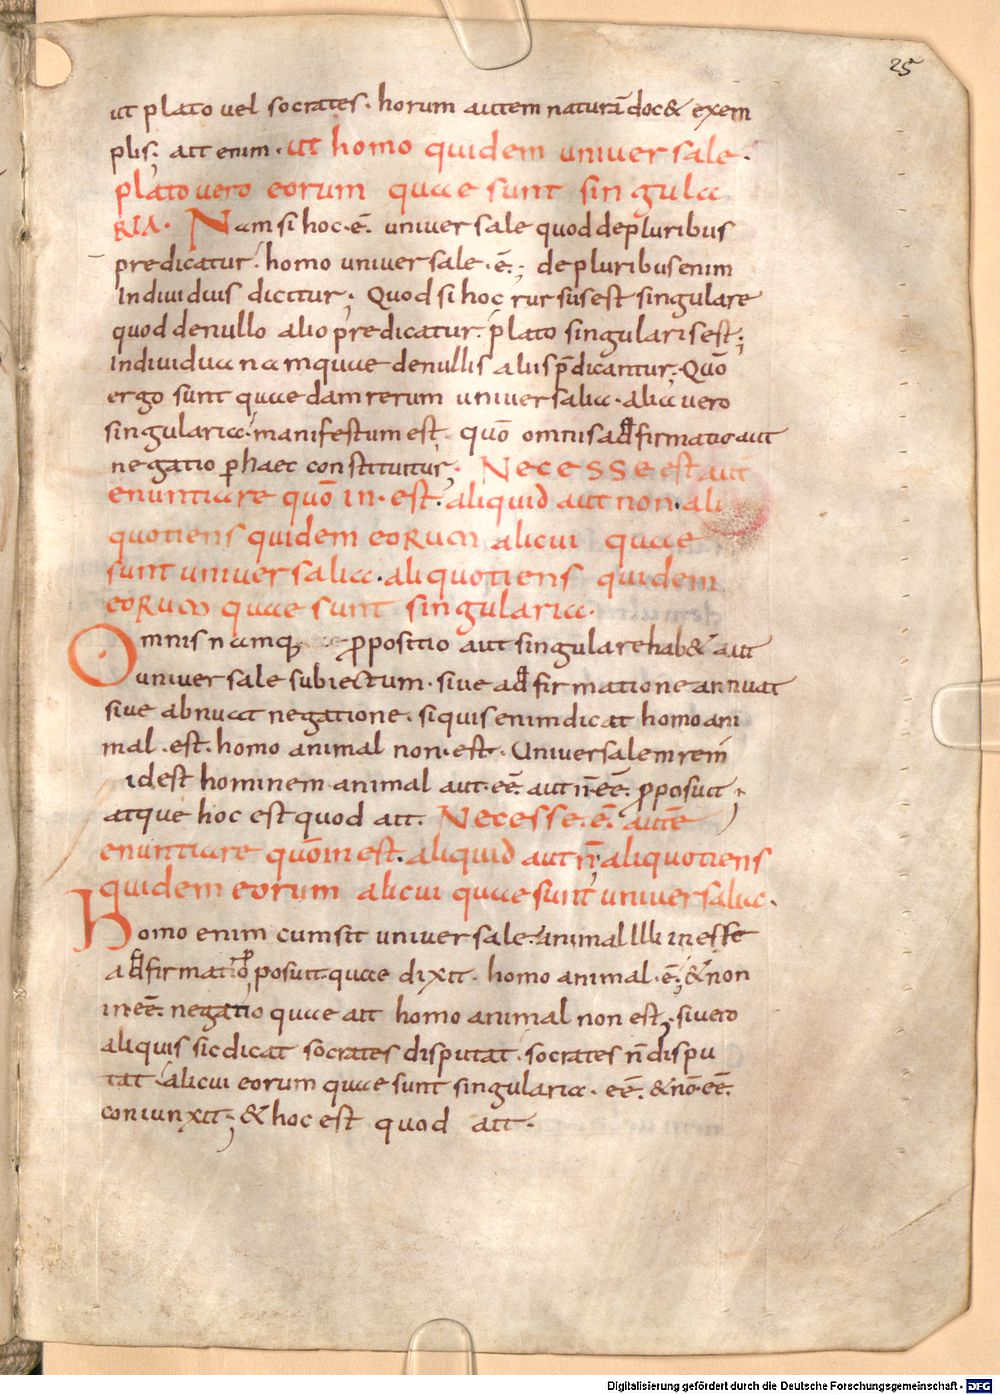 25
ut plato uel socrates. horum autem naturā doc& exem
plis; ait enim. ut homo quidem uniuersale.
plato uero eorum quae sunt singula
RIA. Nam si hoc. ē. uniuersale quod de pluribus
predicatur. homo uniuersale. ē.; de pluribus enim
Indiuiduis dicitur; Quod si hoc rursus est singulare
quod de nullo alio predicatur. plato singularis est;
Indiuidua namquae de nullis aliis p̄dicantur; Quō
ergo sunt quaedam rerum uniuersalia. alia uero
singularia. manifestum est. quō omnis adfirmatio aut
negatio p haec constituitur; Necesse est aut
enuntiare quō in. est. aliquid aut non. ali
quotiens quidem eorum alicui quae
sunt uniuersalia. aliquotiens quidem
eorum quae sunt singularia.
Omnis namq; ppositio aut singulare hab& aut
uniuersale subiectum. siue adfirmatione annuat
siue abnuat negatione. si quis enim dicat homo ani
mal. est. homo animal non. est. Uniuersalem rem
id est hominem animal aut. eē. aut n̄. eē. pposuit;
atque hoc est quod ait. Necesse. ē. autē
enuntiare quōm est. aliquid aut n̄; aliquotiens
quidem eorum alicui quae sunt uniuersalia.
homo enim cum sit uniuersale. animal illi inesse
adfirmatio pposuit. quae dixit. homo animal. ē; & non
in eē. negatio quae ait homo animal non est; si uero
aliquis sic dicat socrates disputat. socrates n̄ dispu
tat. alicui eorum quae sunt singularia. eē. & nō. eē.
coniunxit; & hoc est quod ait.
Digitalisierung gefördert durch die Deutsche Forschungsgemeinschaft - DFG